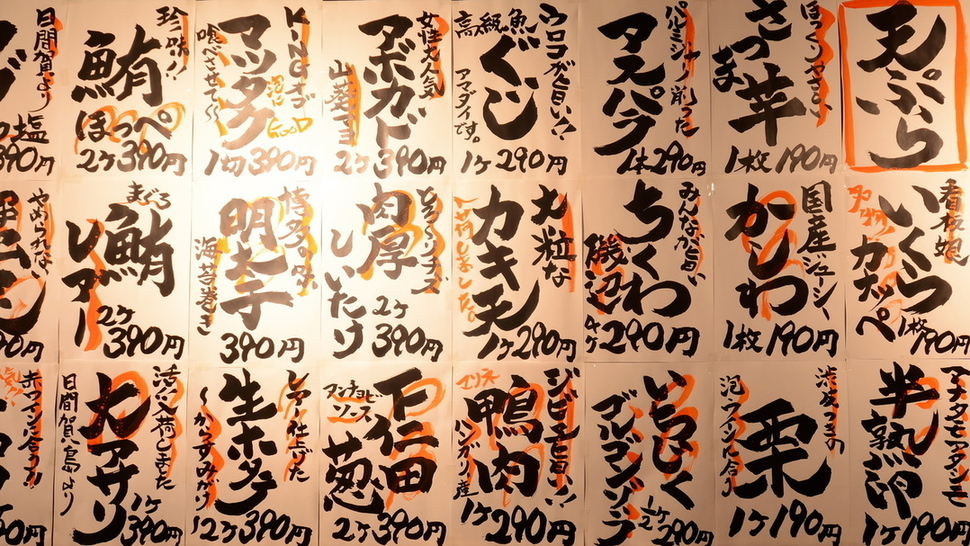 天ぷら
ほっくりやさしい
さつま芋
1枚190円
パルミジャーノ削った
アスパラ
1本290円
ウロコが旨い!!
高級魚
ぐじ
アマダイです。
1ヶ290円
女性大人気
アボカド
山葵マヨ
2ヶ390円
マッタク
喰べさせて〜
泡に
GOOD
1切390円
珍味!!
鮪
ほっぺ
2ヶ390円
日間賀より
塩
390円
看板娘
いくつ
カナッペ
1枚190円
国産ジューシー
かしわ
1枚190円
みんな大好き
ちくわ
磯
290円
大粒な
カキ天
入荷しました。
1ヶ290円
肉厚
しいたけ
2ヶ390円
博多の味
明太子
海苔巻き
390円
まぐろ
鮪
レアー
2ヶ390円
やめられない
半熟卵
1ヶ190円
渋皮つきの
栗
泡ワインに合う
1ヶ190円
いちじく
ゴルゴンゾーラ
290円
ジビエ旨い!!
鴨肉
ハンガリー産
1ヶ290円
下仁田
葱
アンチョビソース
2ヶ390円
レアー仕上げ
生ホタテ
〜からすみがけ
1/2ヶ390円
活入荷しました
大アサリ
日間賀島より
1ヶ390円
赤ワインに合う!!